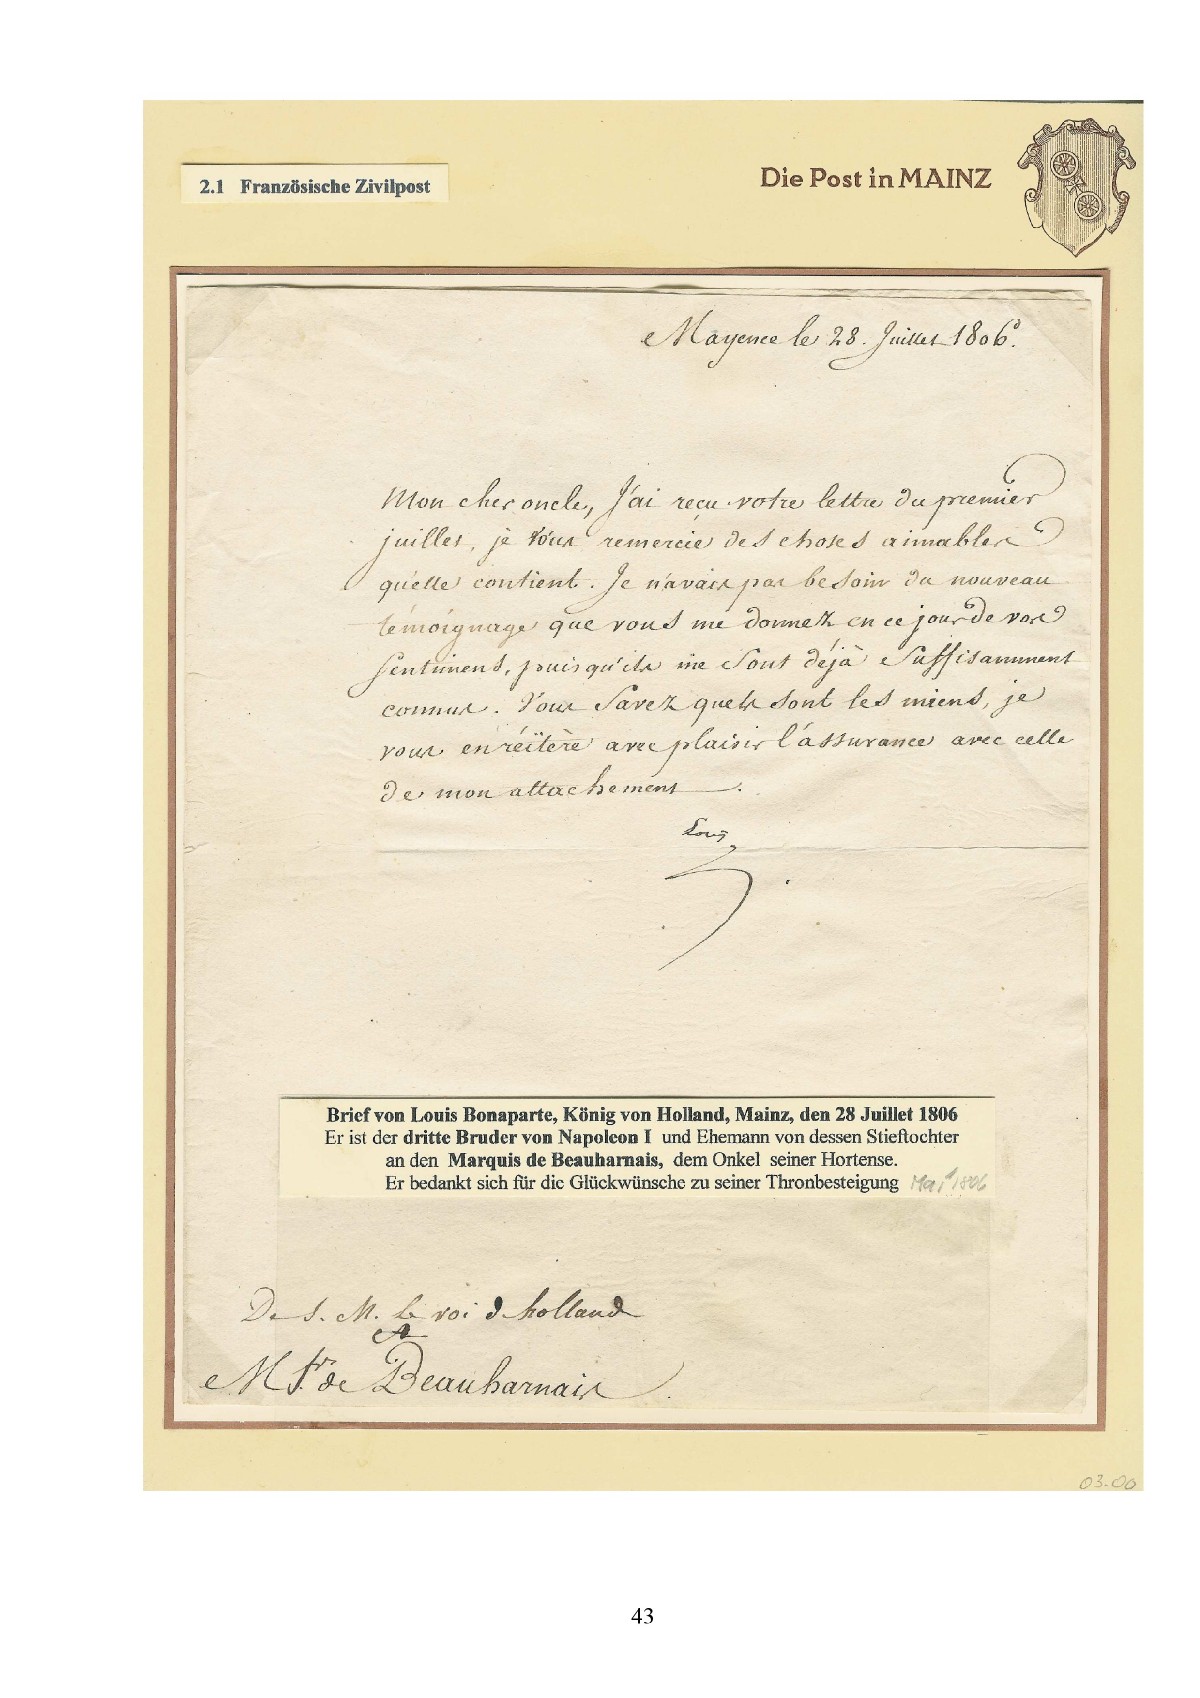 2.1 Französische Zivilpost
Die Post in MAINZ
Mayence le 28. Juillet 1806.
Mon cher oncle, J'ai reçu votre lettre du premier
juillet, je vous remercie des choses aimables
qu'elle contient. Je n'avais pas besoin du nouveau
témoignage que vous me donnez en ce jour de vos
sentimens, puisqu'ils me sont déjà suffisamment
connus. Vous savez quels sont les miens, je
vous en réïtère avec plaisir l'assurance avec celle
de mon attachement.
Louis
Brief von Louis Bonaparte, König von Holland, Mainz, den 28 Juillet 1806
Er ist der dritte Bruder von Napoleon I und Ehemann von dessen Stieftochter
an den Marquis de Beauharnais, dem Onkel seiner Hortense.
Er bedankt sich für die Glückwünsche zu seiner Thronbesteigung Mai 1806
De S. M. le roi d hollande
A
Mr. de Beauharnais
03.00
43